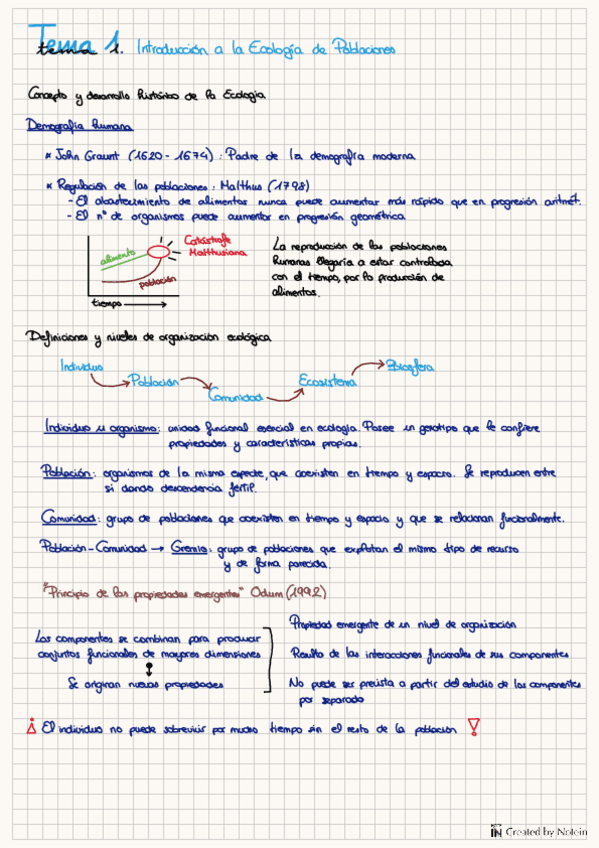 Tema 1. Introducción a la Ecología de Poblaciones
tema
Concepto y desarrollo histórico de la Ecología
Demografía humana
* John Graunt (1620 - 1674) : Padre de la demografía moderna
* Regulación de las poblaciones : Malthus (1798)
- El abastecimiento de alimentos nunca puede aumentar más rápido que en progresión aritmét.
- El nº de organismos puede aumentar en progresión geométrica
alimento
población
tiempo
Catástrofe
Malthusiana
La reproducción de las poblaciones
humanas llegaría a estar controlada
con el tiempo, por la producción de
alimentos.
Definiciones y niveles de organización ecológica
Individuo
Población
Comunidad
Ecosistema
Biosfera
Individuo u organismo: unidad funcional esencial en ecología. Posee un genotipo que le confiere
propiedades y características propias.
Población: organismos de la misma especie, que coexisten en tiempo y espacio. Se reproducen entre
si dando descendencia fértil.
Comunidad: grupo de poblaciones que coexisten en tiempo y espacio y que se relacionan funcionalmente.
Población - Comunidad → Gremio: grupo de poblaciones que explotan el mismo tipo de recurso
y de forma parecida.
"Principio de las propiedades emergentes" Odum (1992)
Los componentes se combinan para producir
conjuntos funcionales de mayores dimensiones
Se originan nuevas propiedades
Propiedad emergente de un nivel de organización
Resulta de las interacciones funcionales de sus componentes
No puede ser prevista a partir del estudio de los componentes
por separado
¡ El individuo no puede sobrevivir por mucho tiempo sin el resto de la población !
IN Created by Notein